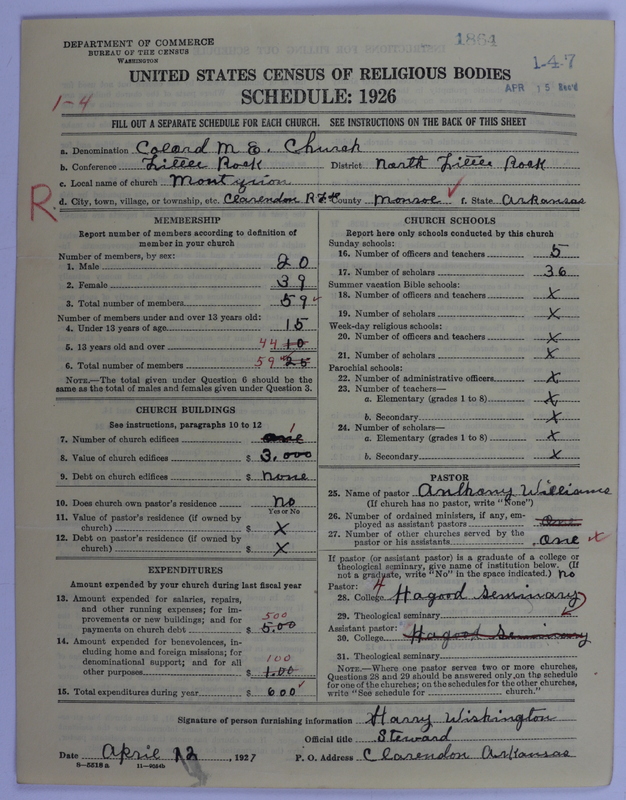 DEPARTMENT OF COMMERCE
BUREAU OF THE CENSUS
WASHINGTON
1864
1-4-7
APR 15 Rec'd
1-4
UNITED STATES CENSUS OF RELIGIOUS BODIES
SCHEDULE: 1926
FILL OUT A SEPARATE SCHEDULE FOR EACH CHURCH. SEE INSTRUCTIONS ON THE BACK OF THIS SHEET
a. Denomination Colard M. E. Church
b. Conference Little Rock District North Little Rock
c. Local name of church Mont zion
R
d. City, town, village, or township, etc. Clarendon R 2 County Monroe f. State Arkansas
MEMBERSHIP
Report number of members according to definition of member in your church
Number of members, by sex:
1. Male 20
2. Female 39
3. Total number of members 59
Number of members under and over 13 years old:
4. Under 13 years of age 15
5. 13 years old and over 44 10
6. Total number of members 59 25
NOTE.—The total given under Question 6 should be the
same as the total of males and females given under Question 3.
CHURCH BUILDINGS
See instructions, paragraphs 10 to 12
7. Number of church edifices one 1
8. Value of church edifices $ 3,000
9. Debt on church edifices $ none
10. Does church own pastor's residence no
Yes or No
11. Value of pastor's residence (if owned by
church) $ X
12. Debt on pastor's residence (if owned by
church) $ X
EXPENDITURES
Amount expended by your church during last fiscal year
13. Amount expended for salaries, repairs,
and other running expenses; for im-
provements or new buildings; and for 500
payments on church debt $ 5.00
14. Amount expended for benevolences, in-
cluding home and foreign missions; for
denominational support; and for all 100
other purposes $ 1.00
15. Total expenditures during year $ 600
CHURCH SCHOOLS
Report here only schools conducted by this church
Sunday schools:
16. Number of officers and teachers 5
17. Number of scholars 36
Summer vacation Bible schools:
18. Number of officers and teachers X
19. Number of scholars X
Week-day religious schools:
20. Number of officers and teachers X
21. Number of scholars X
Parochial schools:
22. Number of administrative officers X
23. Number of teachers—
a. Elementary (grades 1 to 8) X
b. Secondary X
24. Number of scholars—
a. Elementary (grades 1 to 8) X
b. Secondary X
PASTOR
25. Name of pastor Anthony Williams
(If church has no pastor, write "None")
26. Number of ordained ministers, if any, em-
ployed as assistant pastors one
27. Number of other churches served by the
pastor or his assistants one x
If pastor (or assistant pastor) is a graduate of a college or
theological seminary, give name of institution below. (If
not a graduate, write "No" in the space indicated.) no
Pastor:
28. College Hagood Seminary
29. Theological seminary
Assistant pastor:
30. College Hagood Seminary
31. Theological seminary
NOTE.—Where one pastor serves two or more churches,
Questions 28 and 29 should be answered only on the schedule
for one of the churches; on the schedules for the other churches,
write "See schedule for church."
Signature of person furnishing information Harry Wishington
Official title Steward
Date April 12, 1927 P. O. Address Clarendon Arkansas
8—5518a 11—9024b